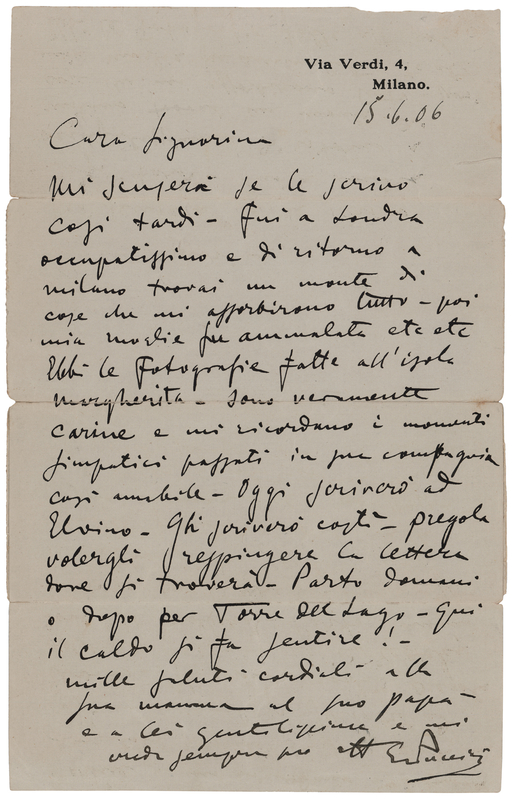 Via Verdi, 4,
Milano.
15.6.06
Cara Signorina
Mi scuserà se le scrivo
così tardi - Fui a Londra
occupatissimo e di ritorno a
milano trovai un monte di
cose che mi assorbirono tutto - poi
mia moglie fu ammalata etc etc
Ebbi le Fotografie fatte all'isola
margherita - Sono veramente
carine e mi ricordano i momenti
simpatici passati in sua compagnia
così amabile - Oggi scriverò ad
Elvino - Gli scriverò costì - pregola
volergli respingere la lettera
dove si troverà - Parto domani
o dopo per Torre del Lago - Qui
il caldo si fa sentire! -
mille saluti cordiali alla
sua mamma al suo papà
e a lei gentilissima e mi
creda sempre suo aff